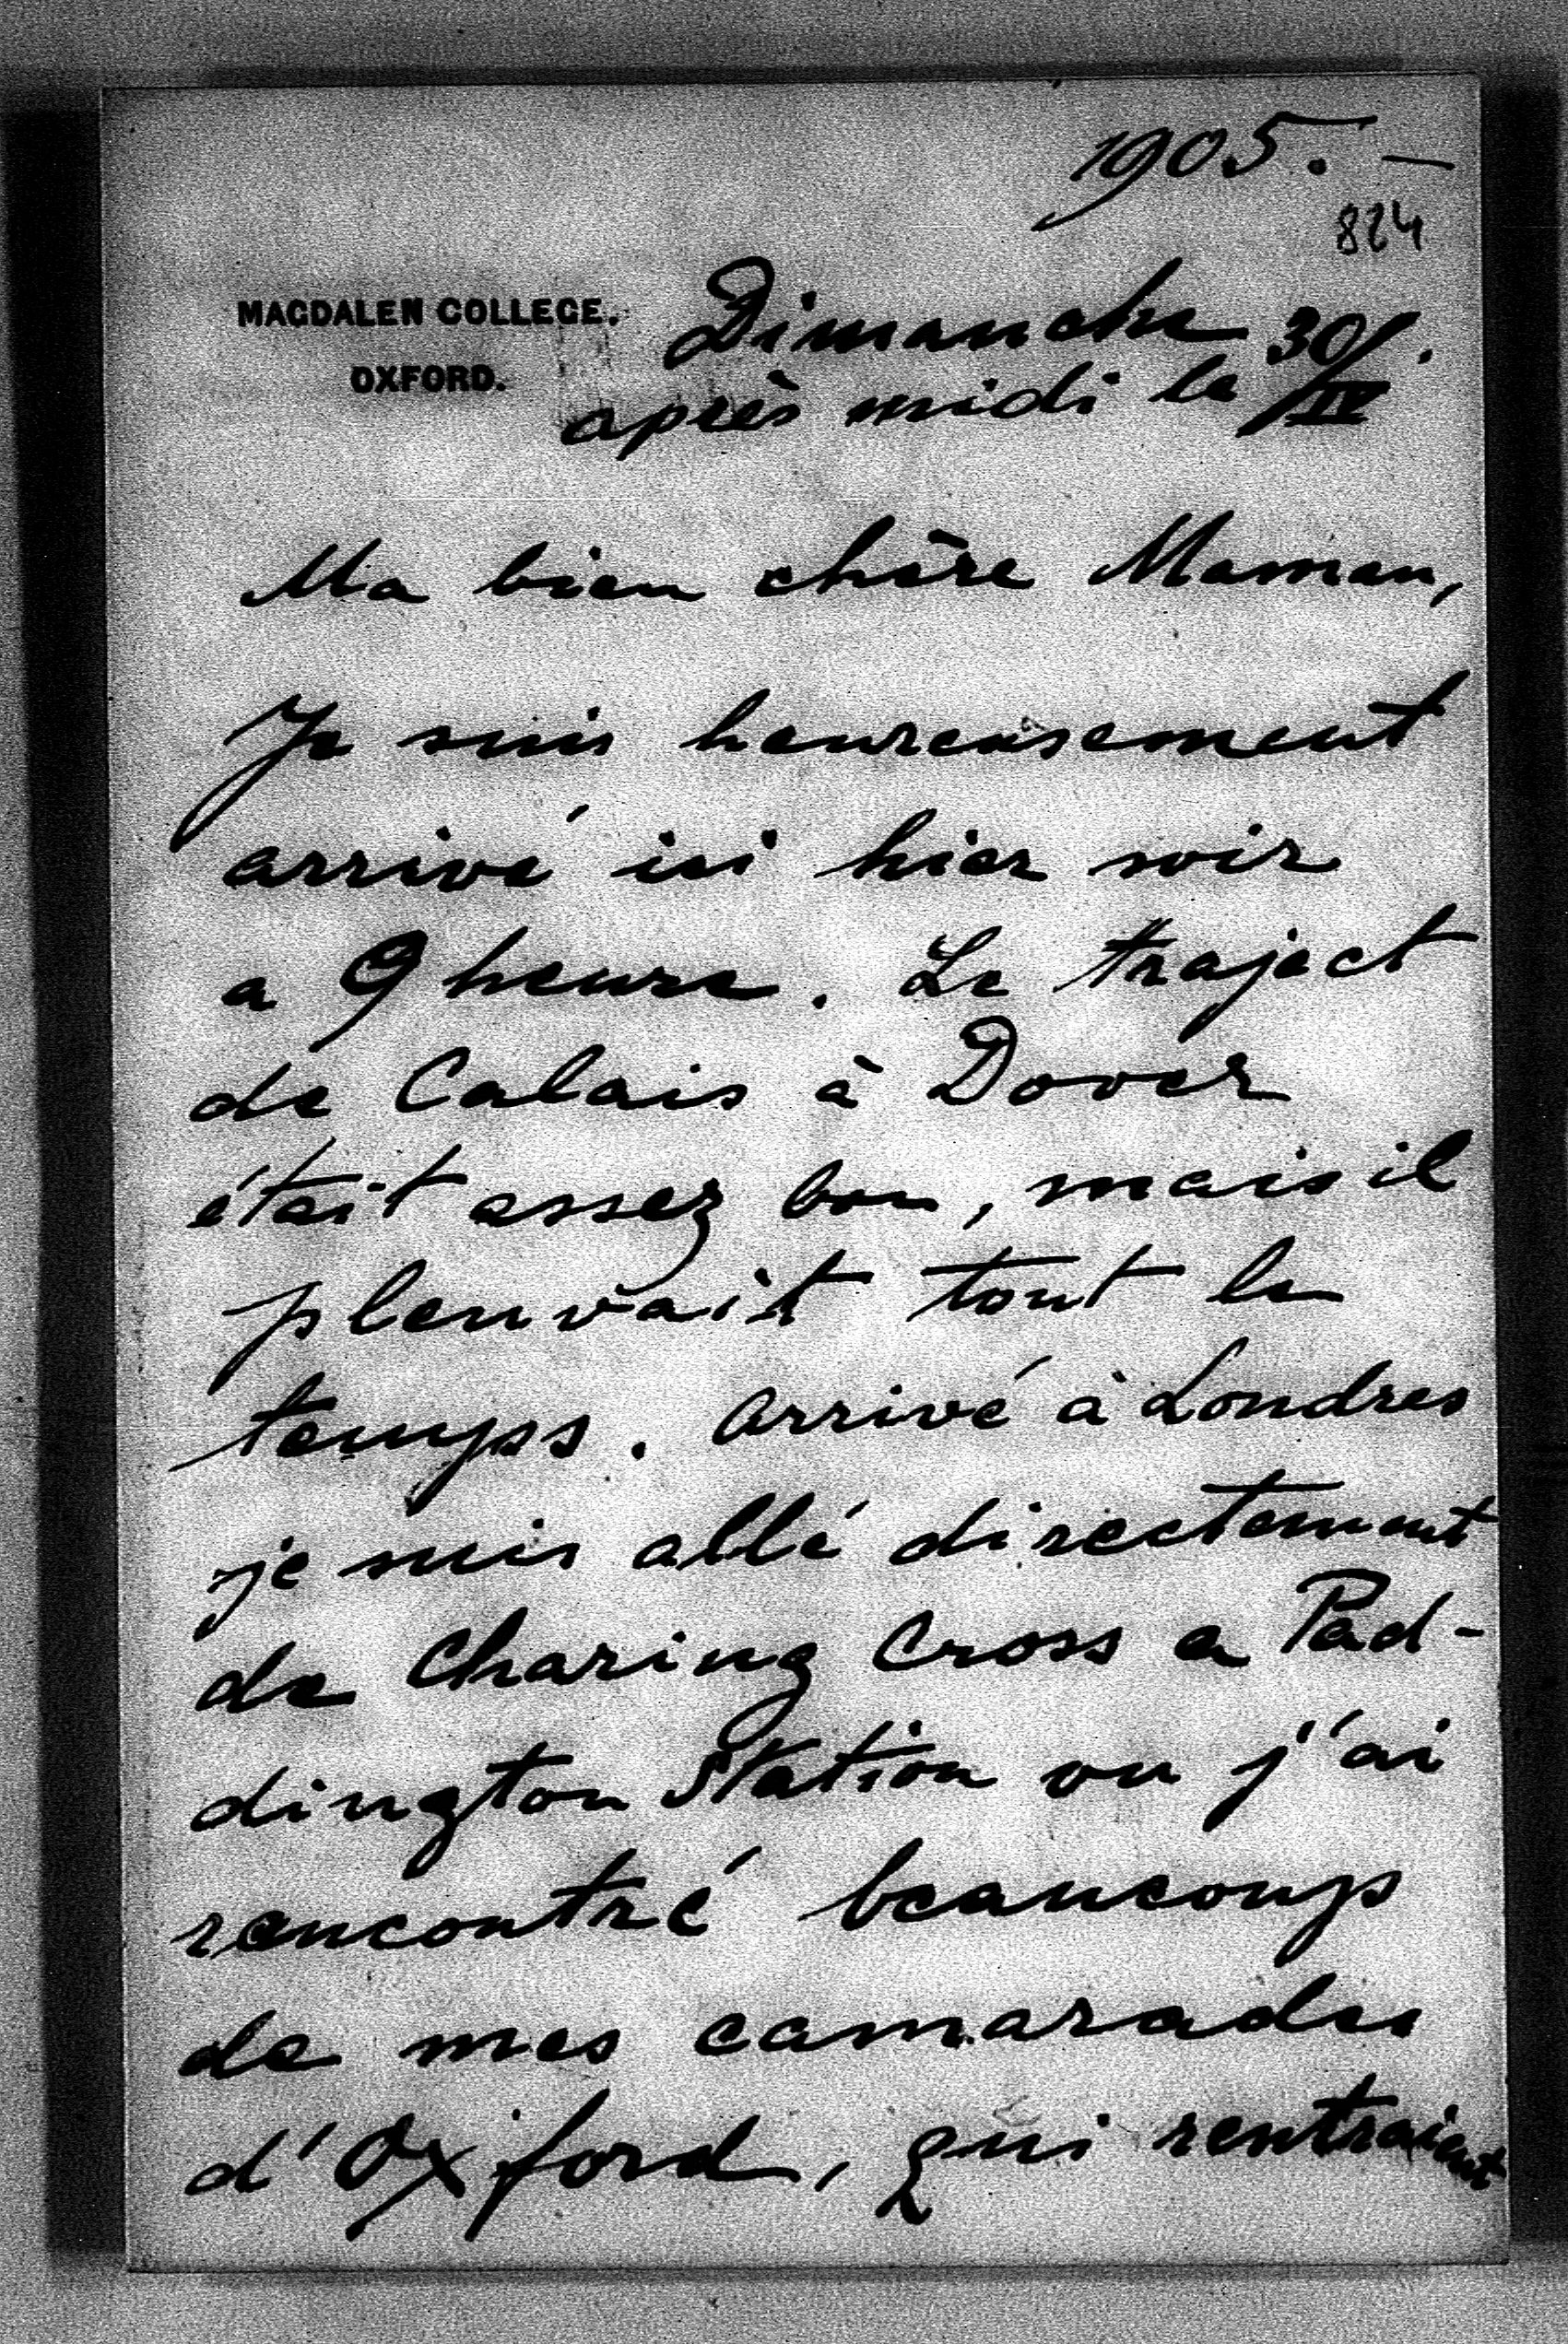 1905. —
824
MAGDALEN COLLEGE.
OXFORD.
Dimanche
après midi le 30/IV.
Ma bien chère Maman,
Je suis heureusement
arrivé ici hier soir
a 9 heure. Le traject
de Calais à Dover
était assez bon, mais il
pleuvait tout le
temps. Arrivé à Londres
je suis allé directement
de Charing Cross a Pad-
dington Station ou j'ai
rencontré beaucoup
de mes camarades
d'Oxford, qui rentraient